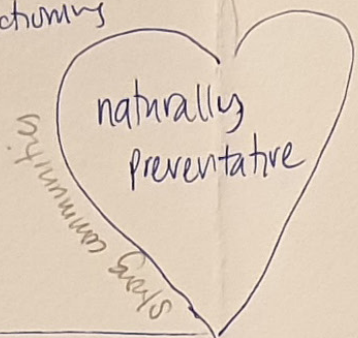 ctioning
naturally
preventative
strong communities